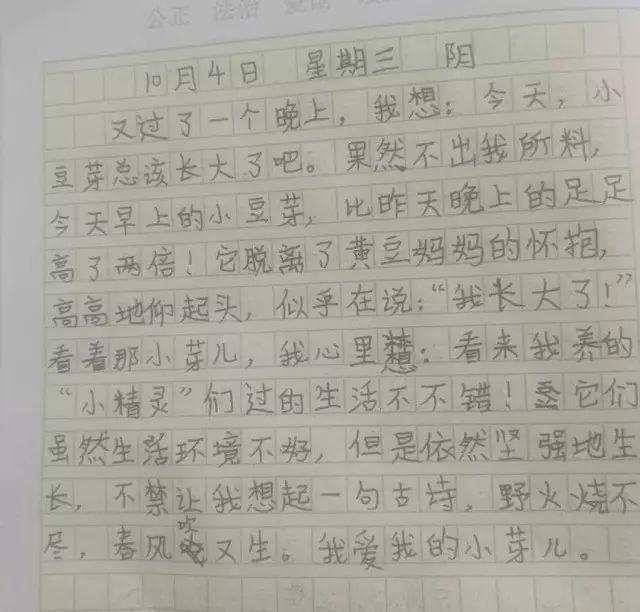 公正 法治
10月4日 星期三 阴
又过了一个晚上,我想:今天,小
豆芽总该长大了吧。果然不出我所料,
今天早上的小豆芽,比昨天晚上的足足
高了两倍!它脱离了黄豆妈妈的怀抱,
高高地仰起头,似乎在说:“我长大了!”
看着那小芽儿,我心里想:看来我养的
“小精灵”们过的生活不不错!它们
虽然生活环境不好,但是依然坚强地生
长,不禁让我想起一句古诗,野火烧不
尽,春风吹又生。我爱我的小芽儿。